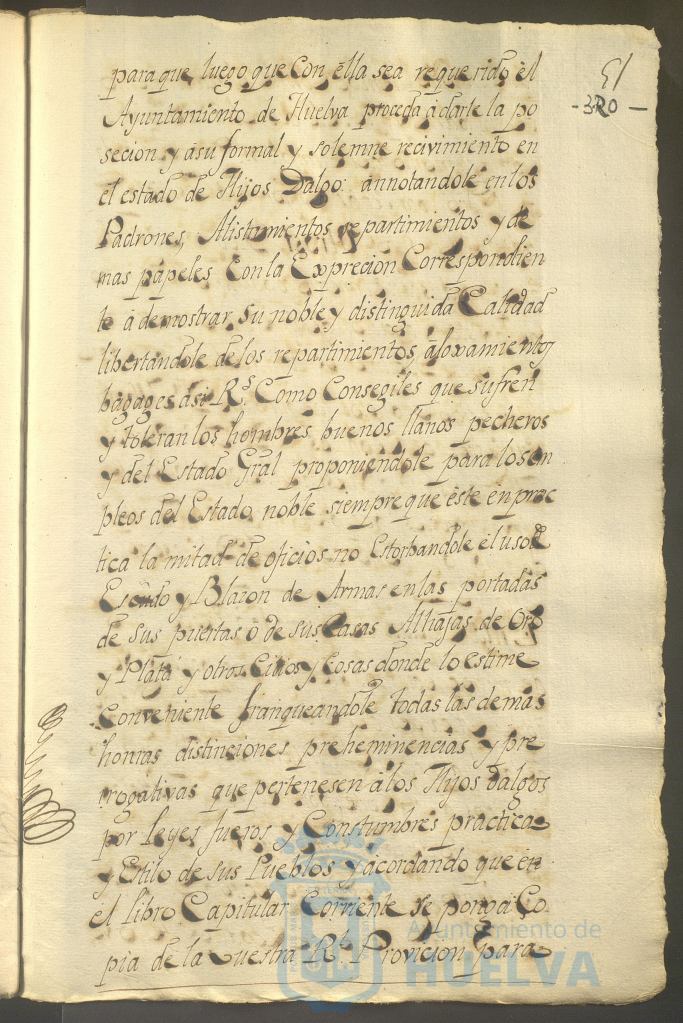 51
-320-
para que luego que con ella sea requerido el
Ayuntamiento de Huelva proceda à darle la po
secion y àsu formal y solemne recivimiento en
el estado de Hijos Dalgo: ànnotandole en los
Padrones, Alistamientos repartimientos y de
mas papeles Con la Exprecion Correspondien
te à demostrar su noble y distinguida Calidad
libertandole de los repartimientos, aloxamientos
bagages àsi Rs. Como Consegiles que sufren
y toleran los hombres buenos llanos pecheros
y del Estado Gral proponiendole para los em
pleos del Estado noble siempre que èste en prac
tica la mitad de oficios no Estorbandole èl uso de
Escudo y Blazon de Armas en las portadas
de sus puertas ò de sus Casas Alhajas de Oro
y Plata y otros Citios y Cosas donde lo estime
Conveniente franqueandole todas las demas
honras distinciones preheminencias y pre
rogativas que pertenesen à los Hijos dalgos
por Leyes fueros y Constumbres practica
y Estilo de sus Pueblos y acordando que en
el libro Capitular Corriente se ponga Co
pia de la Nuestra Rl. Provicion para
Ayuntamiento de
HUELVA